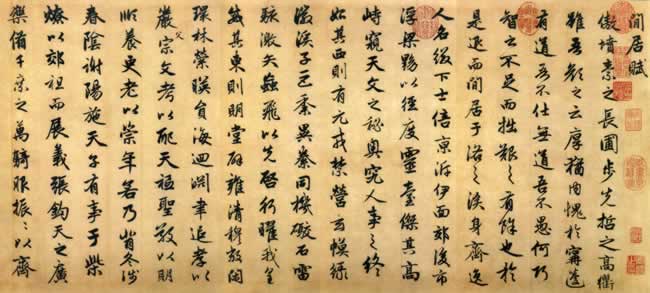 間居賦
傲墳素之長圃步先哲之高衢
雖吾顏之云厚猶内愧於甯蘧
有道吾不仕無道吾不愚何巧
智之不足而拙艱之有餘也於
是退而間居于洛之涘身齊逸
人名綴下士倍京泝伊面郊後市
浮梁黝以徑度靈臺傑其高
峙窺天文之秘奧究人事之終
始其西則有元戎禁營玄幙綠
徽溪子巨黍異絭同機礮石雷
駭激矢蝱飛以先啓行曜我皇
威其東則明堂辟雍清穆敞閑
環林縈暎員海迴淵聿追孝以
嚴父宗文考以配天祗聖敬以明
順養更老以崇年若乃背冬涉
春陰謝陽施天子有事于柴
燎以郊祖而展義張鈞天之廣
樂備千乘之萬騎服振〻以齊